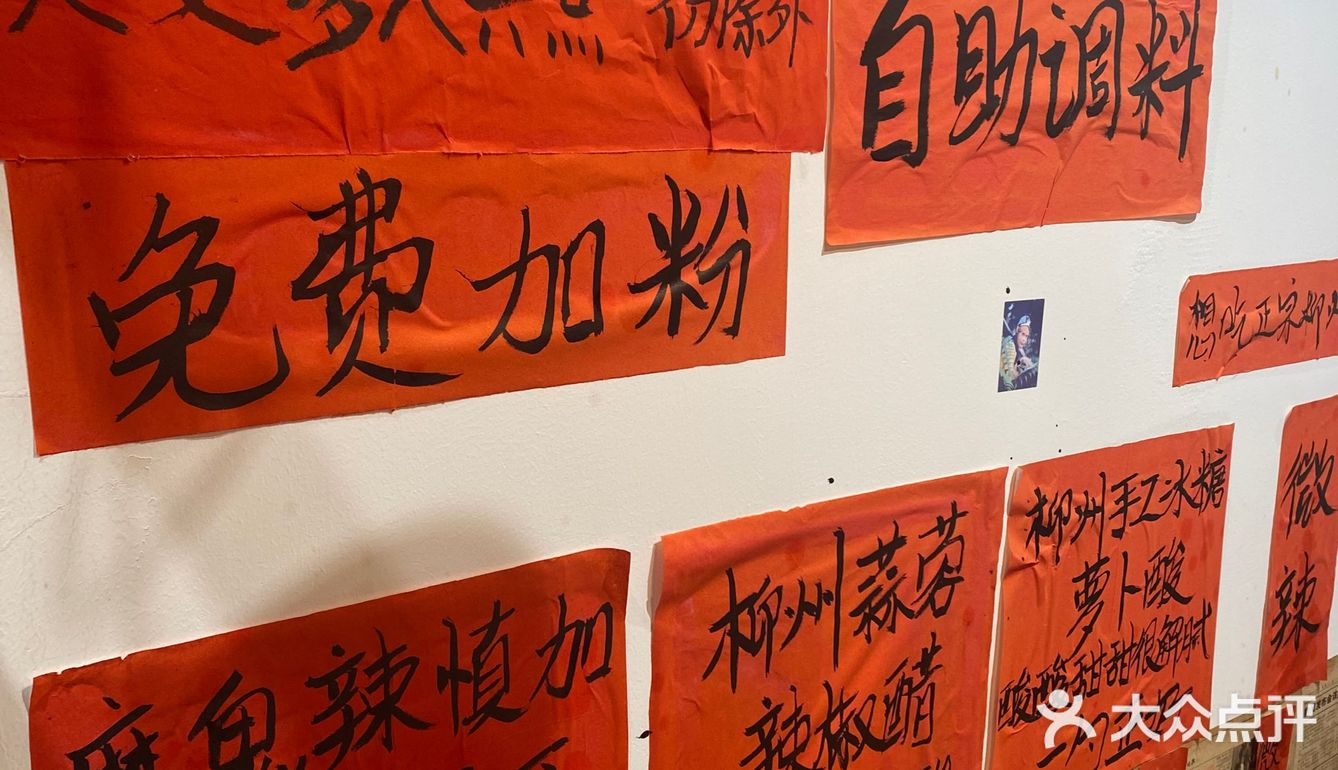 多点
切除外
自助调料
免费加粉
想吃正宗柳州
魔鬼辣慎加
柳州蒜蓉
辣椒醋
柳州手工冰糖
萝卜酸
酸酸甜甜很解腻
微
辣
大众点评